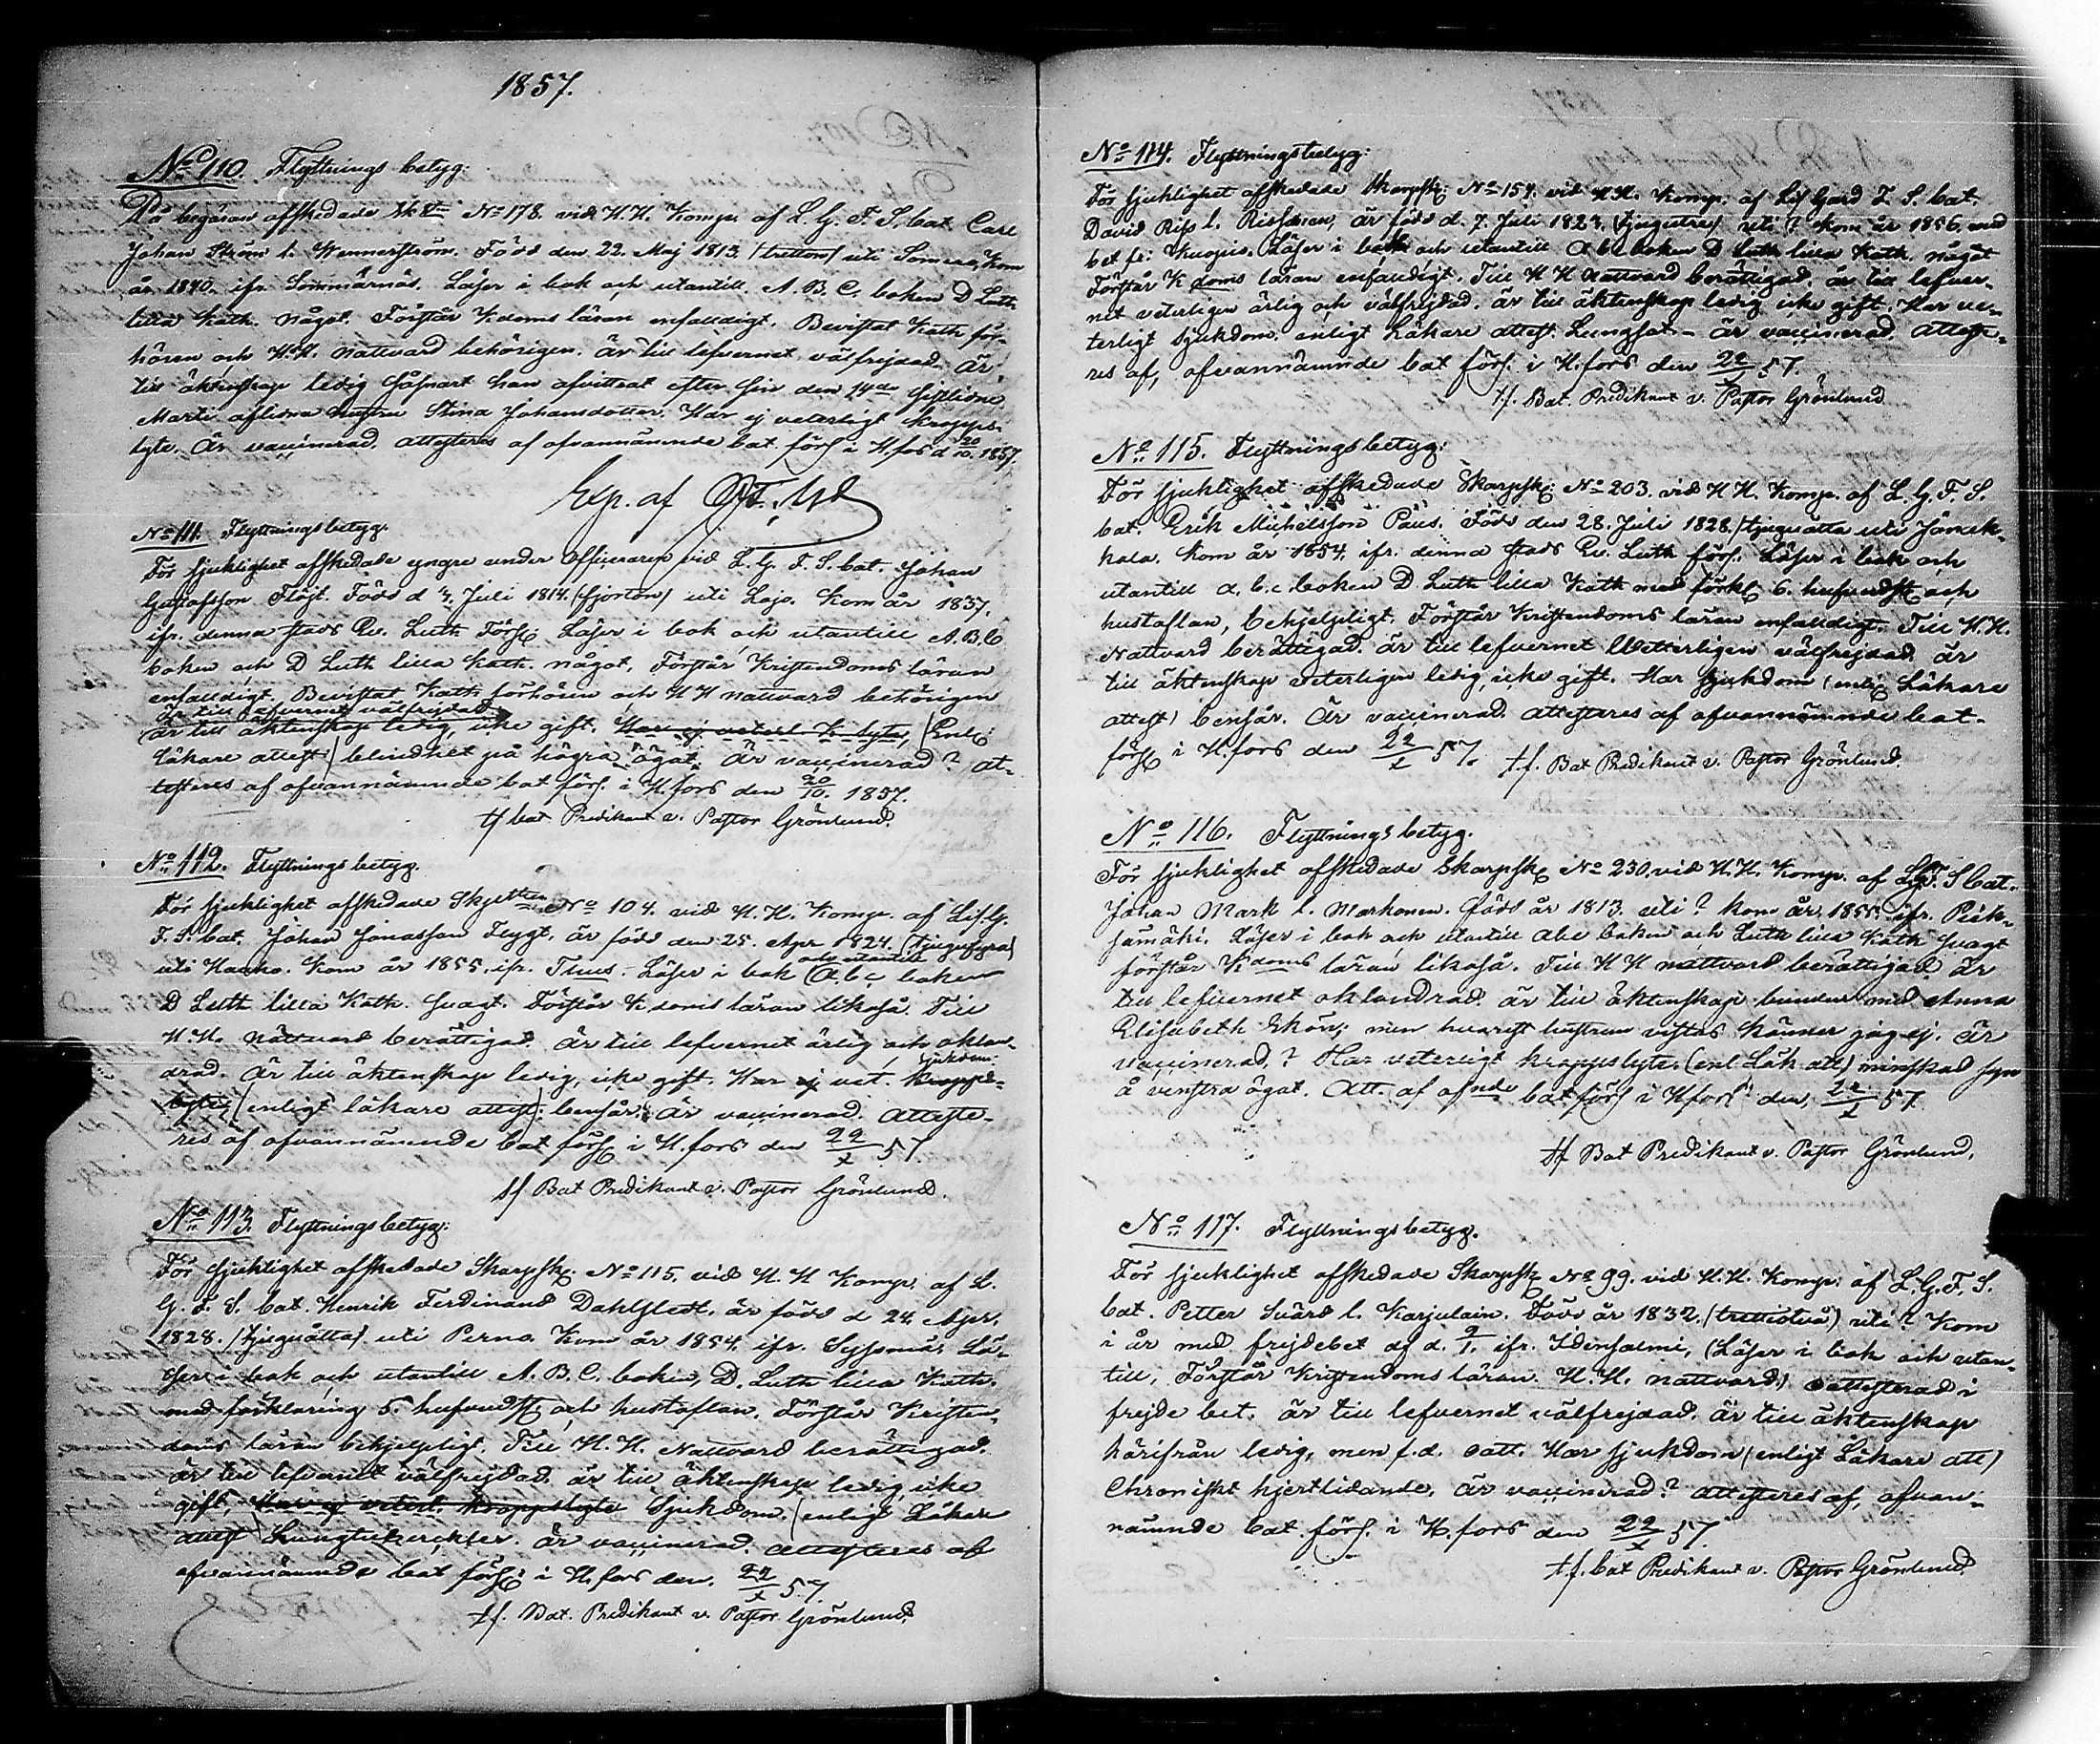 1857.
No 110. Flyttnings betyg:
På begäran afskedade Sk No 178. vid H.H. Komp. af L. G. F. S. bat. Carl
Johan Ström l. Wennerström. Född den 22. Maj 1813. (tretton) uti Somero, Kom
år 1840. ifr. Sommärnäs. Läser i bok och utantill. A. B. C. boken D Luth
lilla Kath. något. Förstår K.doms läran enfaldigt. Bevistat Kath. för-
hören och H.H. nattvard behörigen. är till lefvernet välfrejdad. Är
till äktenskap ledig såsnart han afvittrat efter sin den 14de sistlidne
Martii aflidna hustru Stina Johansdotter. Har ej veterligt kropps-
lyte. Är vaccinerad. attesteras af ofvannämnde bat. förs. i H.fors d. 20/10. 1857.
Exp. af
No 111. Flyttningsbetyg.
För sjuklighet afskedade yngre under officeraren vid L. G. F. S. bat. Johan
Gustafsson Flöjt. Född d 4. Juli 1814. (fjorton) uti Lojo. Kom år 1837.
ifr. denna stads Ev. Luth. Förs. Läser i bok och utantill A.B.C
boken och D Luth lilla Kath. något, Förstår Kristendoms läran
enfaldigt. Bevistat Kath. förhören och H H nattvard behörigen
är till lefvernet välfrejdad
är till äktenskap ledig, icke gift. Har ej veterl. K. lyte, (Enl.
Läkare attest) blindhet på högra ögat. Är vaccinerad? at-
testeras af ofvannämnde bat förs. i H.fors den 20/10. 1857.
tf bat Predikant v. Pastor Grönlund.
No 112. Flyttningsbetyg.
För sjuklighet afskedade Skytten No 104. vid H. H. Komp. af Lif G.
F. S. bat. Johan Jonasson Flygt, är född den 25. Apr 1824. (tjugufyra)
och utantill
uti Hauho. Kom år 1855. ifr. Tuus. Läser i bok (A.b.c boken
D Luth lilla Kath. svagt. Förstår K.doms läran likaså. Till
H.H. Nattvard berättigad. Är till lefvernet ärlig och oklan-
sjukdom
drad. Är till äktenskap ledig, icke gift. Har ej vet. kropps-
lyte, (enligt läkare attest): bensår: är vaccinerad. atteste-
res af ofvannämnde bat förs. i H.fors den 22/x 57.
tf Bat Predikant v. Pastor Grönlund.
No 113. Flyttningsbetyg:
För sjuklighet afskedade Skarpsk. No 115. vid H. H Komp. af L.
G. F. S. bat. Henrik Ferdinand Dahlstedt. är född d 24. Apr.
1828. (tjuguåtta) uti Perno. Kom år 1854. ifr. Lä-
ser i bok och utantill A. B. C. boken, D. Luth lilla Kath.
med förklaring 5. hufvudst. och hustaflan. Förstår Kristen-
doms läran behjelpligt. Till H. H. Nattvard berättigad.
är till lefvernet välfrejdad. är till äktenskap ledig icke
gift, Har ej veterl. kroppslyte Sjukdom. (enligt Läkare
attest är vaccinerad. attesteres af
ofvannämnde bat förs. i H.fors den. 22/x 57.
tf. Bat. Predikant v. Pastor Grönlund.
No 114. Flyttningsbetyg:
För sjuklighet afskedade Skarpsk: No 154. vid H.H. Komp. af Lif Gard F. S. bat.
David Riss l. Rissanen, är född d. 7. Juli 1823. (tjugutre) uti? Kom år 1856. med
bet fr: Kuopio. Läser i bok och utantill a b c boken D Luth lilla Kath. något
Förstår K doms läran enfaldigt. Till H H nattvard berättigad. är till lefver-
net veterligen ärlig och välfrejdad. är till äktenskap ledig icke gift. Har ve-
terligt sjukdom. enligt Läkare attest. Lungsot – är vaccinerad. atteste-
res af, ofvannämnde bat förs. i H.fors den 22/x 57.
tf. Bat. Predikant v. Pastor Grönlund
No 115. Flyttningsbetyg:
För sjuklighet afskedade Skarpsk: No 203. vid H H. Komp. af L. G. F. S.
bat. Erik Michelsson Paus. Född den 28. Juli 1828. (tjuguåtta uti Janak-
kala. Kom år 1854. ifr. denna stads Ev. Luth förs. Läser i bok och
utantill a. b. c. boken D Luth lilla Kath med förkl. 6. hufvudst och
hustaflan, behjelpligt. Förstår Kristendoms läran enfaldigt. Till H.H.
Nattvard berättigad. är till lefvernet Wetterligen välfrejdad. är
till äktenskap veterligen ledig, icke gift. Har sjukdom (enlig Läkare
attest) bensår. Är vaccinerad. attesteres af ofvannämnde bat-
förs. i H.fors den 22/x 57. tf. Bat Predikant v. Pastor Grönlund.
No 116. Flyttningsbetyg.
För sjuklighet afskedade Skarpsk. No 230. vid H.H. Komp. af L.G.F. S bat.
Johan Mark l. Markonen. född år 1813. uti? kom år 1855. ifr. Piek-
sämäki. Läser i bok och utantill abc boken och Luth lilla Kath svagt
förstår K doms läran likaså. Till H H nattvard berättigad. är
till lefvernet oklandrad. är till äktenskap bunden med Anna
Elisabeth Ekön, men hvarest hustrun vistas känner jag ej. är
vaccinerad? Har veterligt kroppslyte. (enl Läk. att) minskad syn
å venstra ögat. Att. af ofnde bat. förs i H.fors den, 22/x 57.
tf Bat Predikant v. Pastor Grönlund.
No 117. Flyttningsbetyg.
För sjuklighet afskedade Skarpsk No 99. vid H. H. Komp. af L. G. F. S.
bat. Petter Svärd l. Karjulain. Född år 1832. (trettiotvå) uti? Kom
i år med frejdebet af d. ifr. Idensalmi, (Läser i bok och utan-
till, Förstår Kristendoms läran. H. H. nattvard) oattesterad i
frejde bet. är till lefvernet välfrejdad. är till äktenskap
härifrån ledig, men f.d. oatt. Har sjukdom (enligt Läkare att)
Chroniskt hjertlidande. är vaccinerad? attesteres af, ofvan-
nämnde bat. förs. i H.fors den 22/x 57.
t.f. bat Predikant v. Pastor Grönlund.